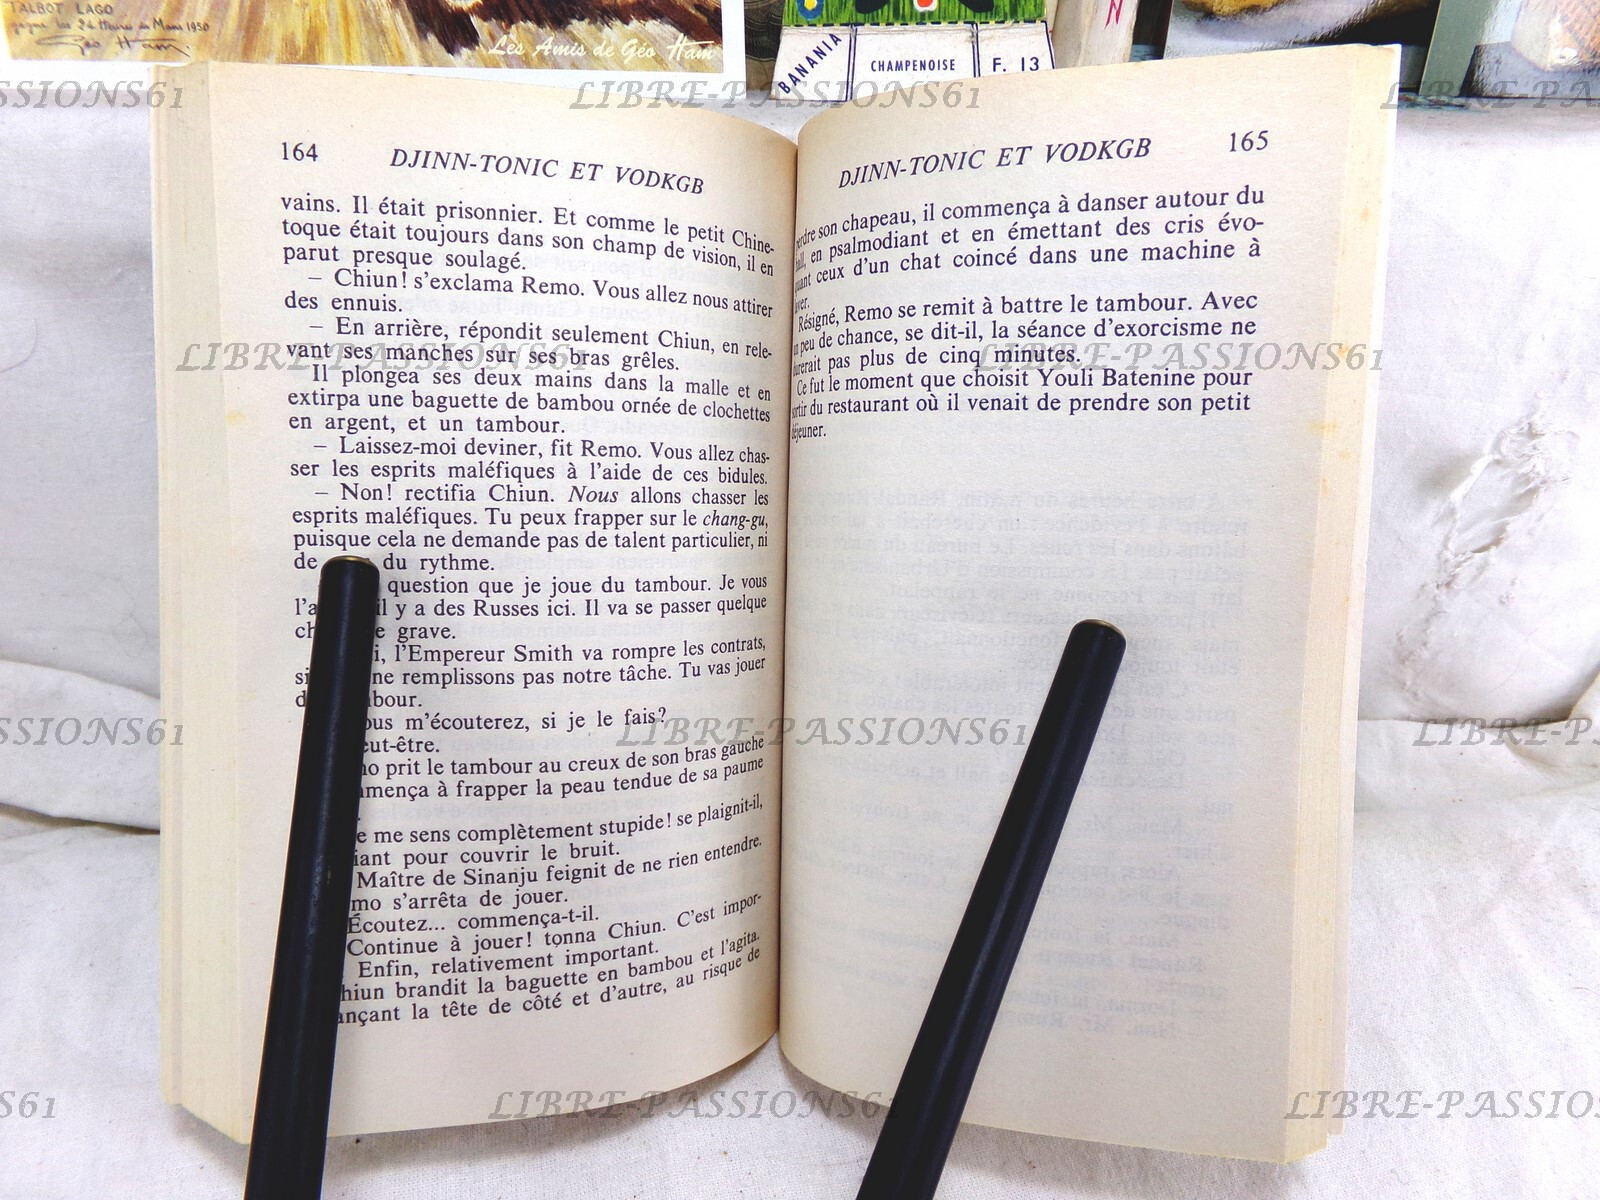 TALBOT LAGO
gagne les 24 Heures du Mans 1950
Géo Ham.
Les Amis de Géo Ham
BANANIA
CHAMPENOISE
F. 13
N
LIBRE-PASSIONS61
164
DJINN-TONIC ET VODKGB
vains. Il était prisonnier. Et comme le petit Chine-
toque était toujours dans son champ de vision, il en
parut presque soulagé.
– Chiun! s'exclama Remo. Vous allez nous attirer
des ennuis.
– En arrière, répondit seulement Chiun, en rele-
vant ses manches sur ses bras grêles.
Il plongea ses deux mains dans la malle et en
extirpa une baguette de bambou ornée de clochettes
en argent, et un tambour.
– Laissez-moi deviner, fit Remo. Vous allez chas-
ser les esprits maléfiques à l'aide de ces bidules.
– Non! rectifia Chiun. Nous allons chasser les
esprits maléfiques. Tu peux frapper sur le chang-gu,
puisque cela ne demande pas de talent particulier, ni
de du rythme.
question que je joue du tambour. Je vous
l'a il y a des Russes ici. Il va se passer quelque
ch e grave.
i, l'Empereur Smith va rompre les contrats,
si ne remplissons pas notre tâche. Tu vas jouer
d bour.
ous m'écouterez, si je le fais?
eut-être.
o prit le tambour au creux de son bras gauche
mença à frapper la peau tendue de sa paume
e me sens complètement stupide! se plaignit-il,
iant pour couvrir le bruit.
Maître de Sinanju feignit de ne rien entendre.
mo s'arrêta de jouer.
Écoutez... commença-t-il.
Continue à jouer! tonna Chiun. C'est impor-
Enfin, relativement important.
hiun brandit la baguette en bambou et l'agita.
ançant la tête de côté et d'autre, au risque de
165
DJINN-TONIC ET VODKGB
perdre son chapeau, il commença à danser autour du
hall, en psalmodiant et en émettant des cris évo-
quant ceux d'un chat coincé dans une machine à
laver.
Résigné, Remo se remit à battre le tambour. Avec
un peu de chance, se dit-il, la séance d'exorcisme ne
durerait pas plus de cinq minutes.
Ce fut le moment que choisit Youli Batenine pour
sortir du restaurant où il venait de prendre son petit
déjeuner.